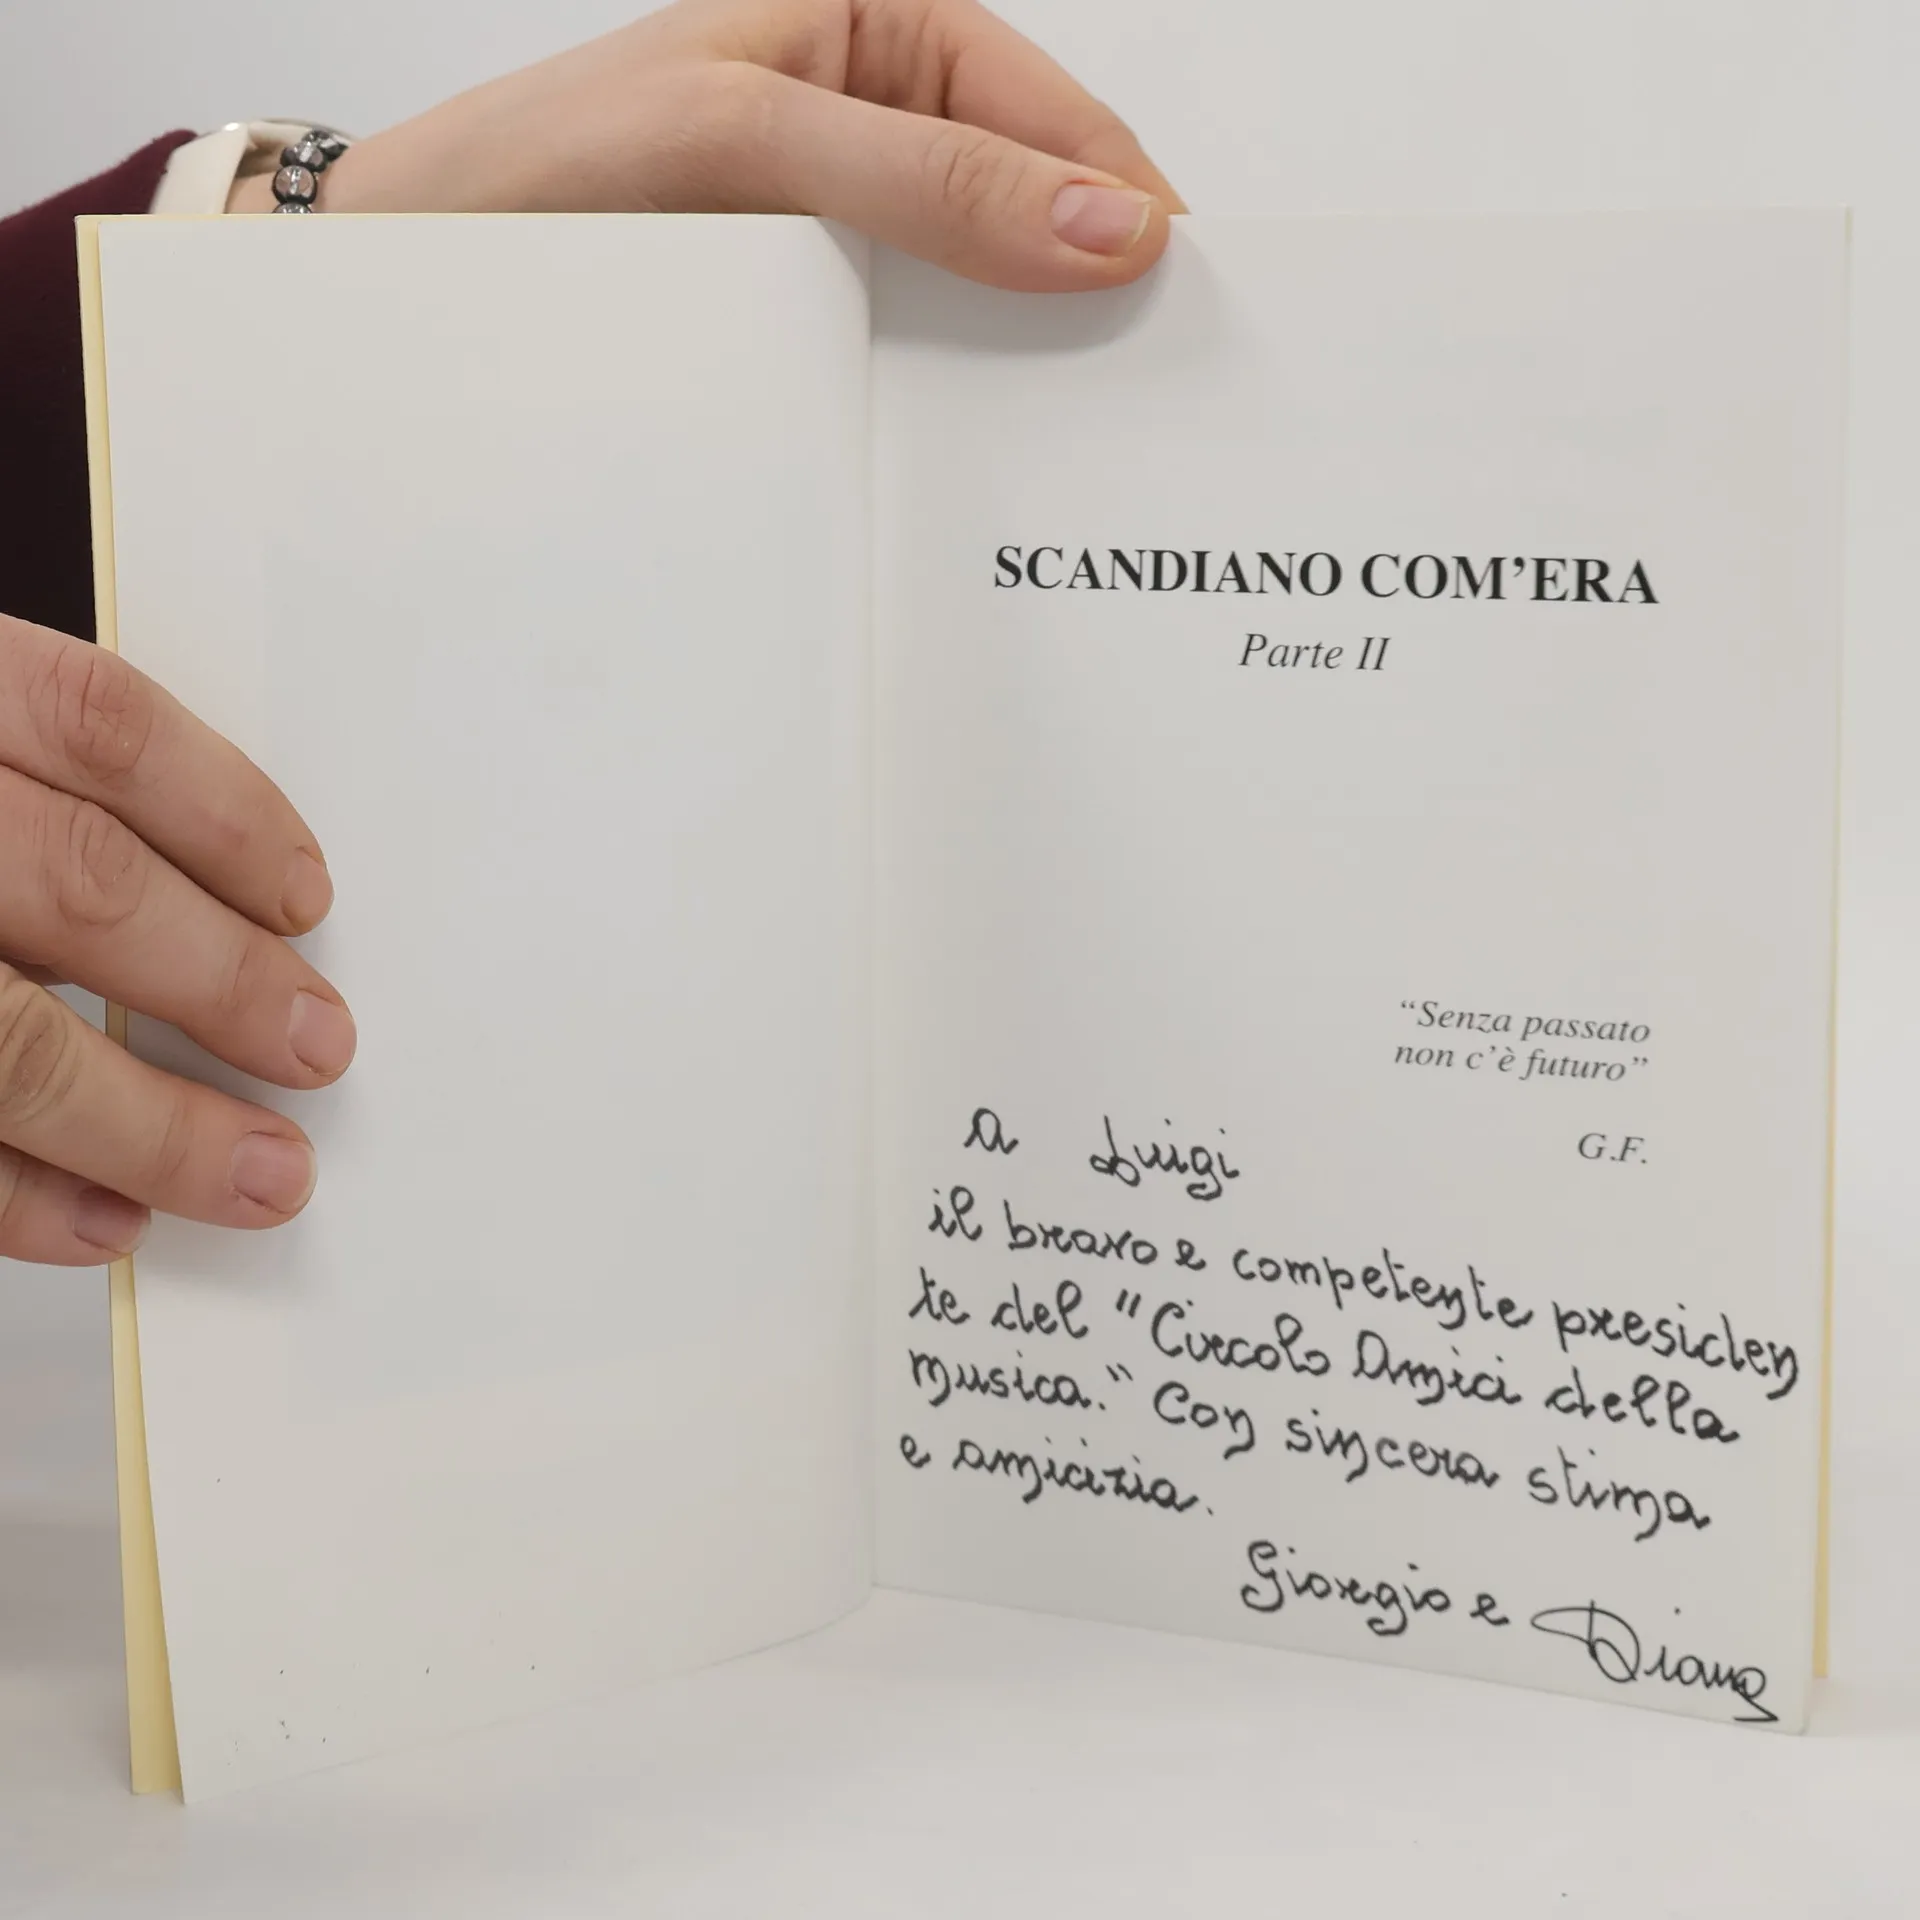 SCANDIANO COM'ERA
Parte II
“Senza passato
non c'è futuro”
G.F.
a Luigi
il bravo e competente presiden
te del "Circolo Amici della
musica." Con sincera stima
e amicizia.
Giorgio e Diana